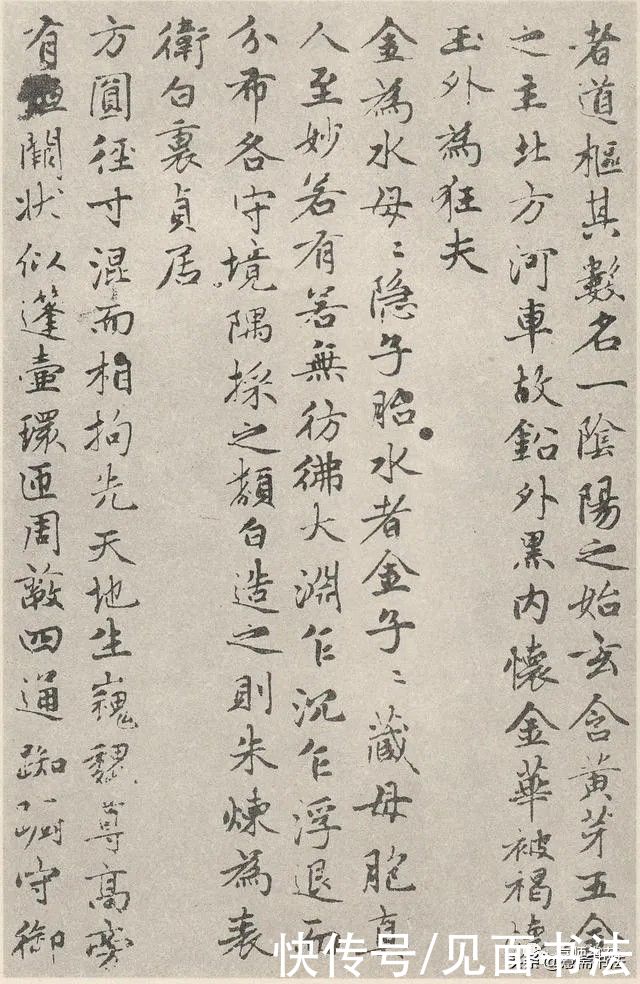 者道樞其數名一陰陽之始玄含黃芽五金
之主北方河車故鉛外黑内懷金華被褐懷
玉外為狂夫
金為水母〻隐子胎水者金子〻藏母胞真
人至妙若有若無彷彿大淵乍沉乍浮退而
分布各守境隅採之類白造之則朱煉為表
衛白裏貞居
方圓径寸混而相拘先天地生巍巍尊高旁
有垣闕状似蓬壷環匝周敲四通踟蹰守御
快传号/见面书法